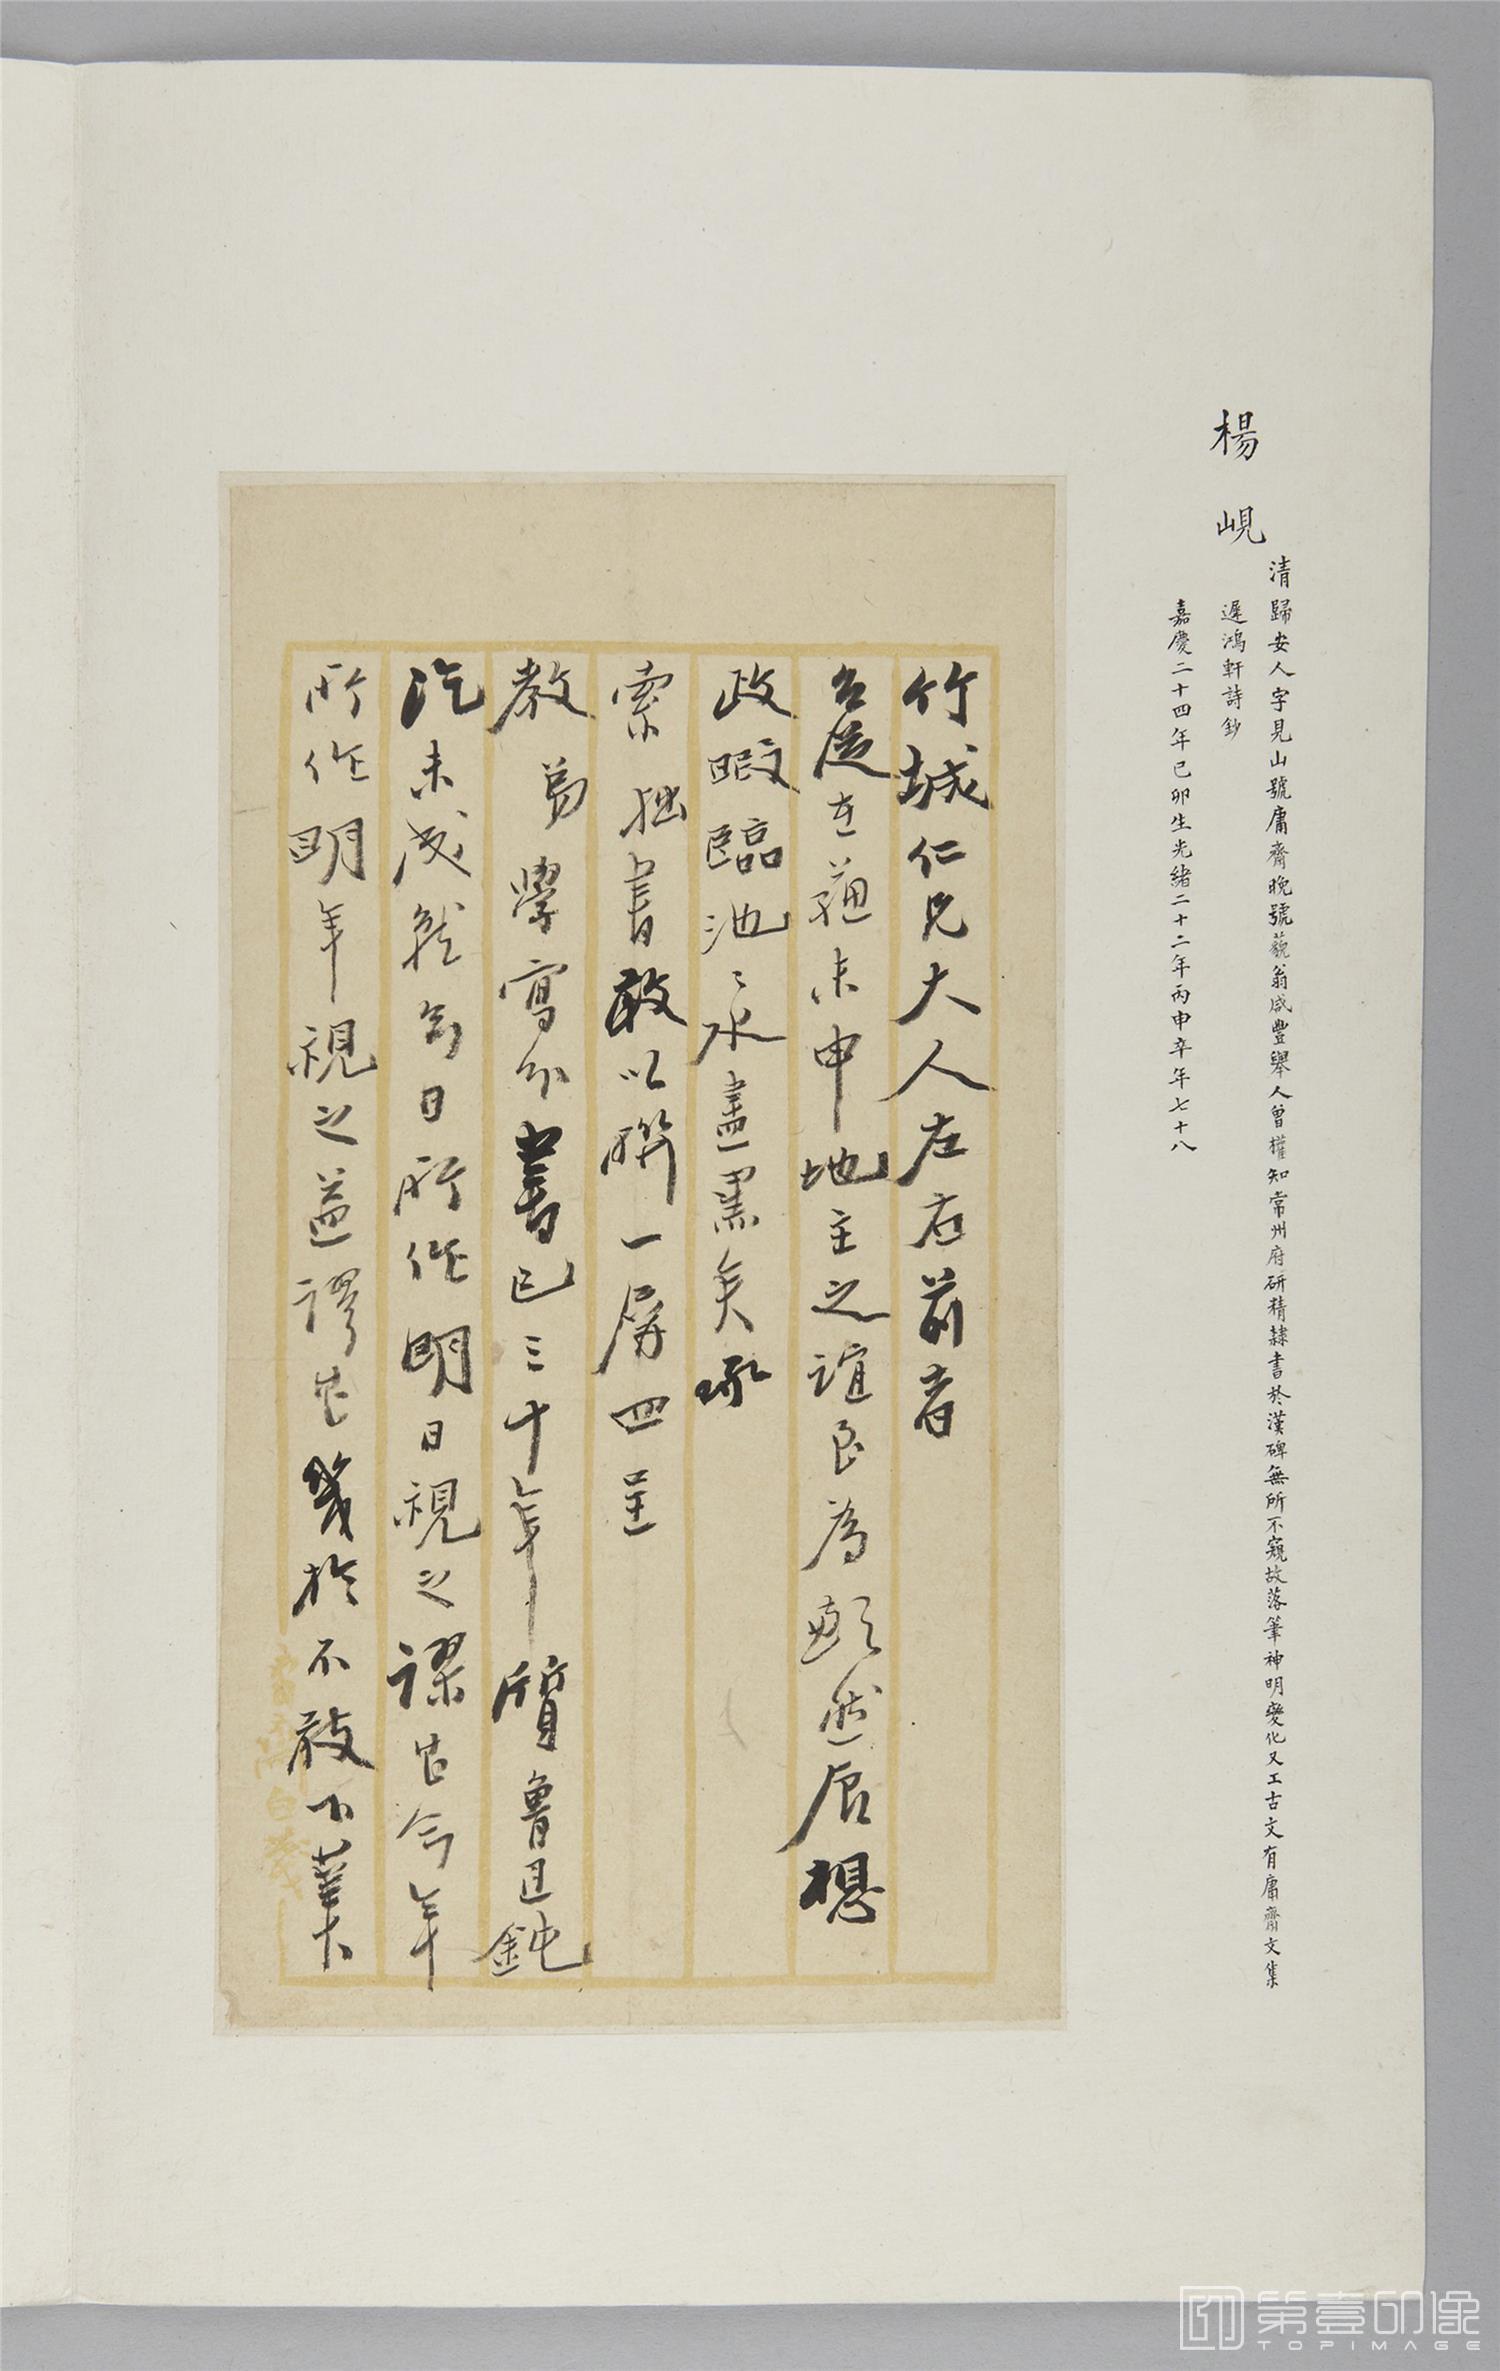 楊峴
清歸安人字見山號庸齋晚號藐翁咸豐舉人曾權知常州府研精隸書於漢碑無所不窺故落筆神明變化又工古文有庸齋文集
遲鴻軒詩鈔
嘉慶二十四年己卯生光緒二十二年丙申卒年七十八
竹城仁兄大人左右前者
台從在蘇未申地主之誼良為慙然辰想
政暇臨池〻水盡黑矣承
索拙書敢以聯一屏四呈
教弟學寫分書已三十年質魯且鈍
汔未成就今日所作明日視之謬也今年
所作明年視之益謬也幾於不敢下筆
第壹印像
TOPIMAGE